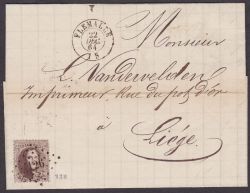 FLEMALLE
22
DEC
64
Monsieur
L. Vandevelden
Imprimeur, Rue du pot d'or
à
Liége.